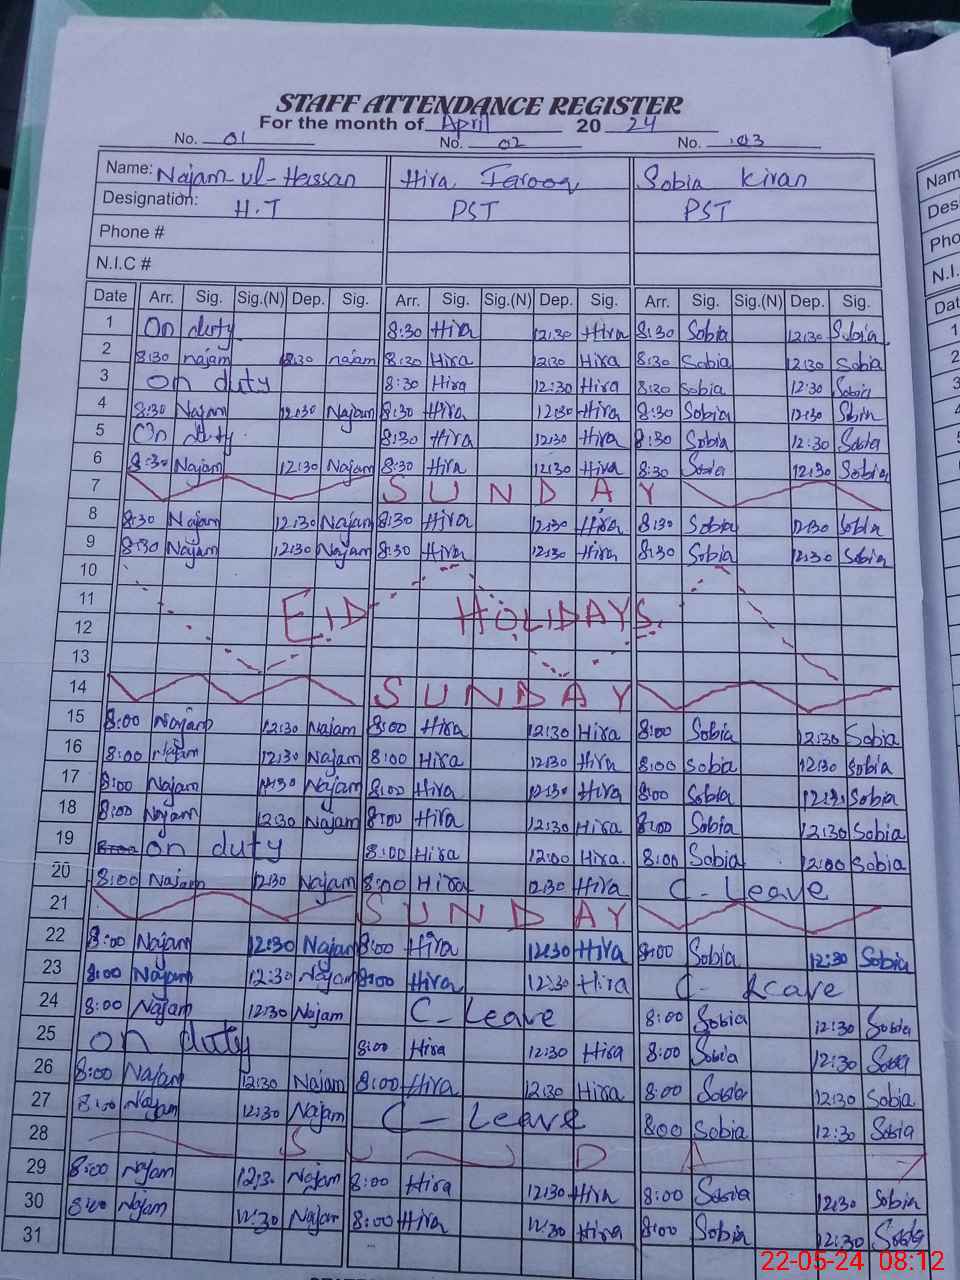 STAFF ATTENDANCE REGISTER
For the month of April 20 24
No. 01 No. 02 No. 03
Name: Najam-ul-Hassan Hira Farooq Sobia Kiran
Designation: H.T PST PST
Phone #
N.I.C #
Date Arr. Sig. Sig.(N) Dep. Sig. Arr. Sig. Sig.(N) Dep. Sig. Arr. Sig. Sig.(N) Dep. Sig.
1 On duty 8:30 Hira 12:30 Hira 8:30 Sobia 12:30 Sobia
2 8:30 najam 12:30 najam 8:30 Hira 12:30 Hira 8:30 Sobia 12:30 Sobia
3 on duty 8:30 Hira 12:30 Hira 8:30 Sobia 12:30 Sobia
4 8:30 Najam 12:30 Najam 8:30 Hira 12:30 Hira 8:30 Sobia 12:30 Sobia
5 On duty 8:30 Hira 12:30 Hira 8:30 Sobia 12:30 Sobia
6 8:30 Najam 12:30 Najam 8:30 Hira 12:30 Hira 8:30 Sobia 12:30 Sobia
7 SUNDAY
8 8:30 Najam 12:30 Najam 8:30 Hira 12:30 Hira 8:30 Sobia 12:30 Sobia
9 8:30 Najam 12:30 Najam 8:30 Hira 12:30 Hira 8:30 Sobia 12:30 Sobia
10
11 EID HOLIDAYS
12
13
14 SUNDAY
15 8:00 Najam 12:30 Najam 8:00 Hira 12:30 Hira 8:00 Sobia 12:30 Sobia
16 8:00 Najam 12:30 Najam 8:00 Hira 12:30 Hira 8:00 Sobia 12:30 Sobia
17 8:00 Najam 12:30 Najam 8:00 Hira 12:30 Hira 8:00 Sobia 12:30 Sobia
18 8:00 Najam 12:30 Najam 8:00 Hira 12:30 Hira 8:00 Sobia 12:30 Sobia
19 on duty 8:00 Hira 12:00 Hira 8:00 Sobia 12:00 Sobia
20 8:00 Najam 12:30 Najam 8:00 Hira 12:30 Hira C-Leave
21 SUNDAY
22 8:00 Najam 12:30 Najam 8:00 Hira 12:30 Hira 8:00 Sobia 12:30 Sobia
23 8:00 Najam 12:30 Najam 8:00 Hira 12:30 Hira C-Leave
24 8:00 Najam 12:30 Najam C-Leave 8:00 Sobia 12:30 Sobia
25 on duty 8:00 Hira 12:30 Hira 8:00 Sobia 12:30 Sobia
26 8:00 Najam 12:30 Najam 8:00 Hira 12:30 Hira 8:00 Sobia 12:30 Sobia
27 8:00 Najam 12:30 Najam C-Leave 8:00 Sobia 12:30 Sobia
28 SUNDAY
29 8:00 Najam 12:30 Najam 8:00 Hira 12:30 Hira 8:00 Sobia 12:30 Sobia
30 8:00 Najam 12:30 Najam 8:00 Hira 12:30 Hira 8:00 Sobia 12:30 Sobia
31
22-05-24 08:12